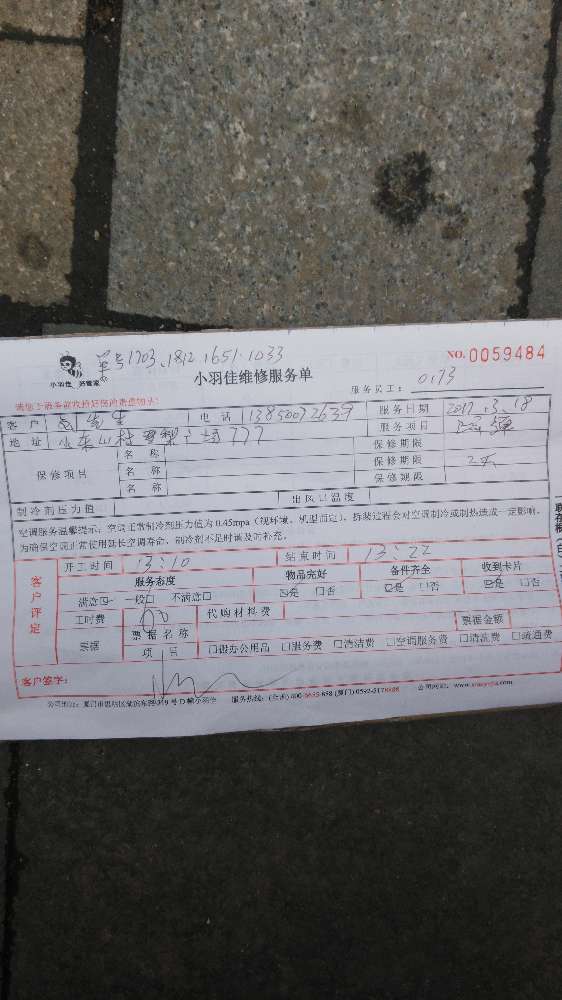 单号1703.1812.1651.1033
小羽佳 好管家
小羽佳维修服务单
NO. 0059484
服务员工: 0173
客户 先生 电话 13850072639 服务日期 2017.3.18
地址 777 服务项目
保修项目 名称 保修期限
名称 保修期限 2天
名称 保修期限
制冷剂压力值 出风口温度
空调服务温馨提示:空调正常制冷剂压力值为0.45mpa(视环境、机型而定),拆装过程会对空调制冷或制热造成一定影响,
为确保空调正常使用延长空调寿命,制冷剂不足时请及时补充。
客户评定
开工时间 13:10 结束时间 13:22
服务态度 物品完好 备件齐全 收到卡片
满意☑ 一般□ 不满意□ ☑是 □否 ☑是 □否 ☑是 □否
工时费 代购材料费
票据 票据名称 票据金额
项目 □报办公用品 □服务费 □清洁费 □空调服务费 □清洗费 □疏通费
客户签字: